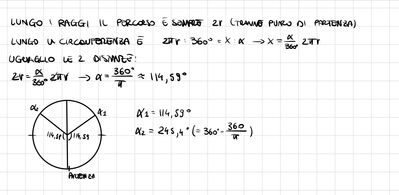 LUNGO I RAGGI IL PERCORSO È SEMPRE 2r (TRANNE PUNTO DI PARTENZA)
LUNGO LA CIRCONFERENZA È 2πr : 360° = X : α → X = α/360° 2πr
UGUAGLIO LE 2 DISTANZE:
2r = α/360° 2πr → α = 360°/π ≈ 114,59°
α₂ α₁
114,59 114,59
PARTENZA
α₁ = 114,59°
α₂ = 245,4° (= 360° - 360/π)